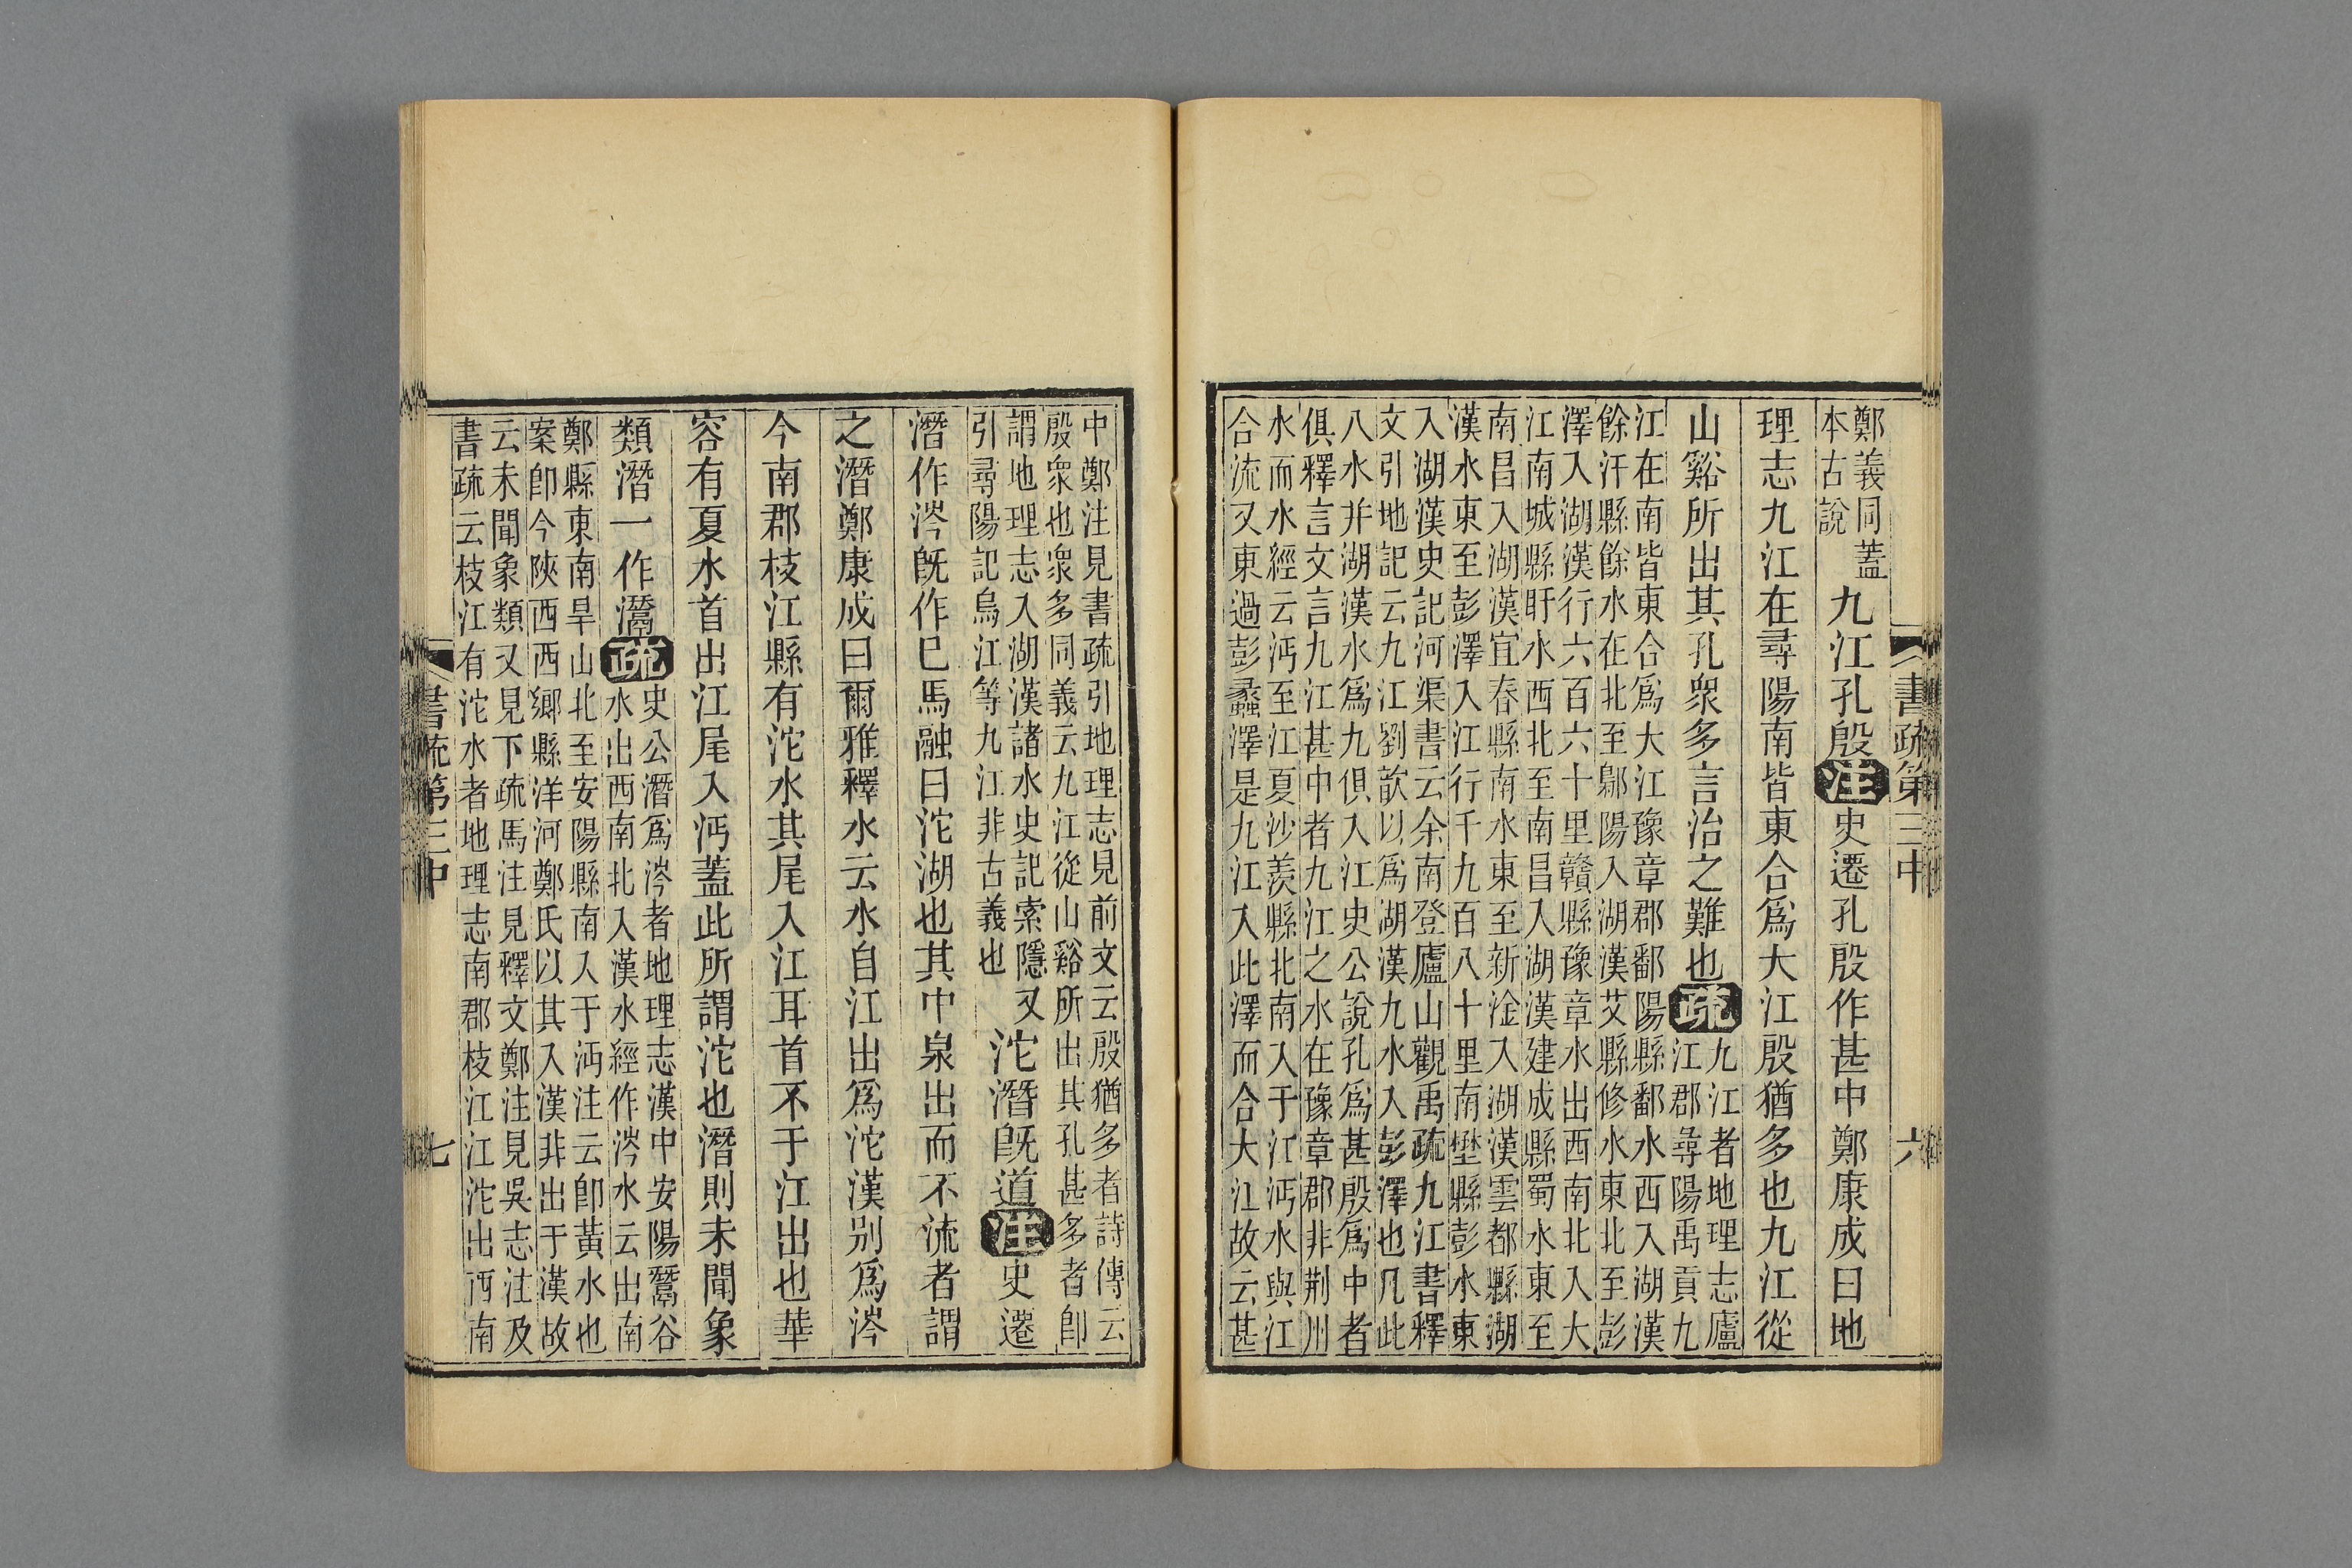 書疏第三中
六
鄭義同蓋
本古說
九江孔殷注史遷孔殷作甚中鄭康成曰地
理志九江在尋陽南皆東合爲大江殷猶多也九江從
山谿所出其孔衆多言治之難也疏
九江者地理志廬
江郡尋陽禹貢九
江在南皆東合爲大江豫章郡鄱陽縣鄱水西入湖漢
餘汗縣餘水在北至鄡陽入湖漢艾縣修水東北至彭
澤入湖漢行六百六十里贛縣豫章水出西南北入大
江南城縣盱水西北至南昌入湖漢建成縣蜀水東至
南昌入湖漢宜春縣南水東至新淦入湖漢雲都縣湖
漢水東至彭澤入江行千九百八十里南壄縣彭水東
入湖漢史記河渠書云余南登廬山觀禹疏九江書釋
文引地記云九江劉歆以爲湖漢九水入彭澤也凡此
八水并湖漢水爲九俱入江史公說孔爲甚殷爲中者
俱釋言文言九江甚中者九江之水在豫章郡非荆州
水而水經云沔至江夏沙羨縣北南入于江沔水與江
合流又東過彭蠡澤是九江入此澤而合大江故云甚
中鄭注見書疏引地理志見前文云殷猶多者詩傳云
殷衆也衆多同義云九江從山谿所出其孔甚多者卽
謂地理志入湖漢諸水史記索隱又
引尋陽記烏江等九江非古義也
沱潛旣道注史遷
潛作涔旣作巳馬融曰沱湖也其中泉出而不流者謂
之潛鄭康成曰爾雅釋水云水自江出爲沱漢别爲涔
今南郡枝江縣有沱水其尾入江耳首不于江出也華
容有夏水首出江尾入沔蓋此所謂沱也潛則未聞象
類潛一作灊疏
史公潛爲涔者地理志漢中安陽鬵谷
水出西南北入漢水經作涔水云出南
鄭縣東南旱山北至安陽縣南入于沔注云卽黃水也
案卽今陝西西鄉縣洋河鄭氏以其入漢非出于漢故
云未聞象類又見下疏馬注見釋文鄭注見吳志注及
書疏云枝江有沱水者地理志南郡枝江江沱出西南
書疏第三中
七